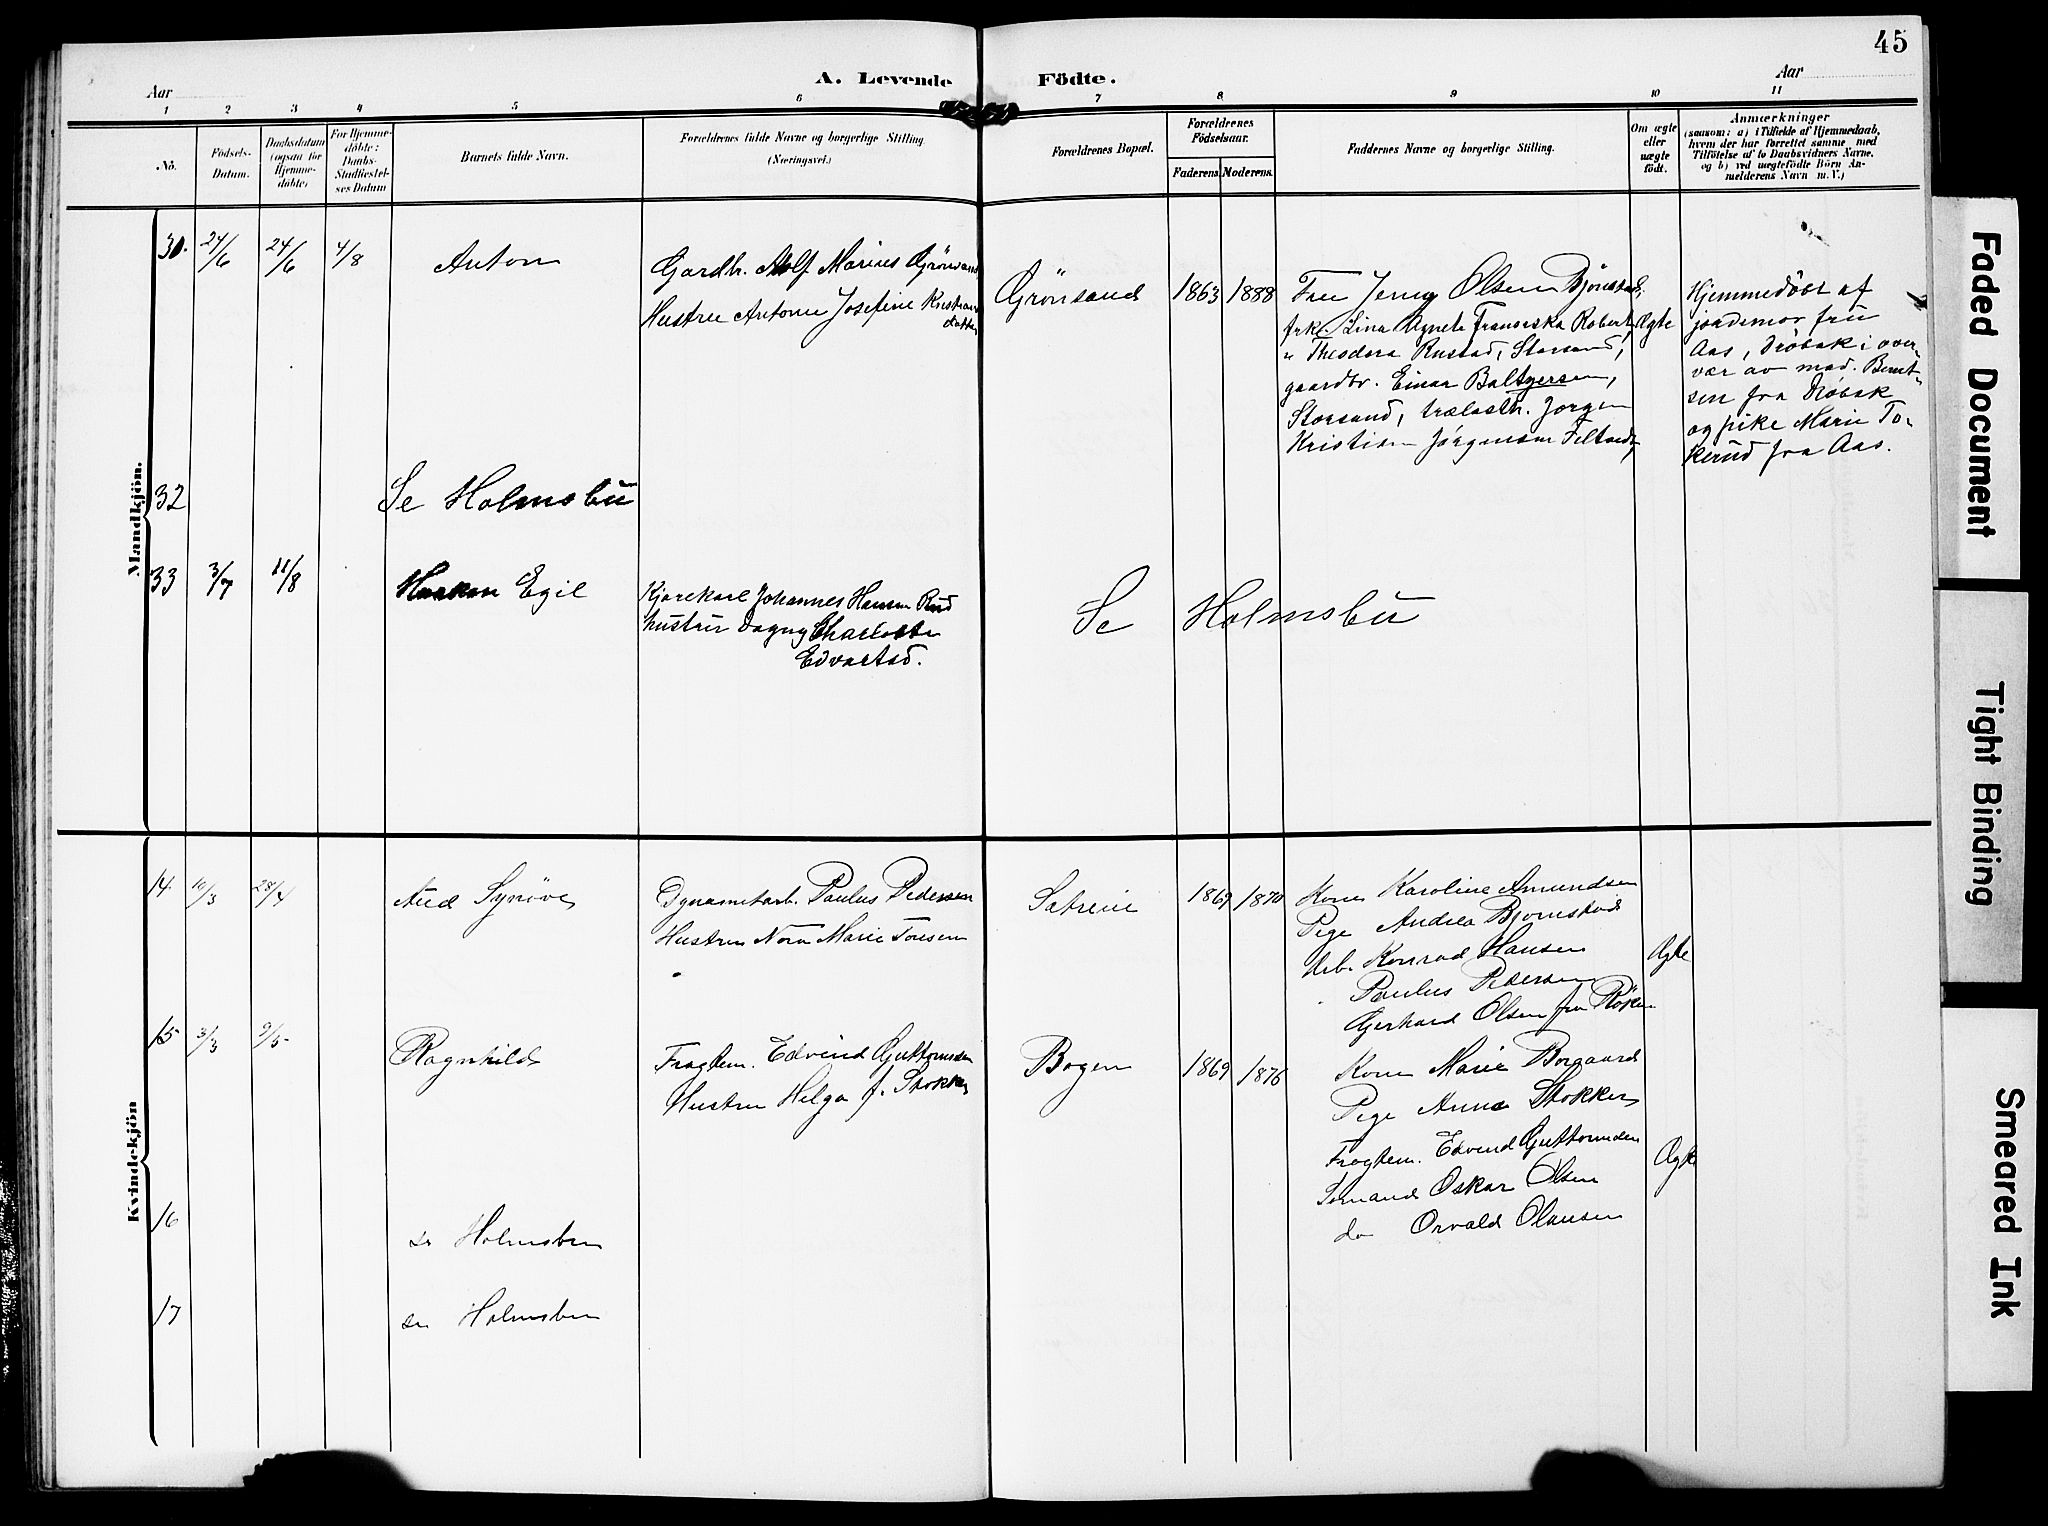 45
A. Levende Födte.
Aar
Aar
1 2 3 4 5 6 7 8 9 10 11
No.
Födsels-
Datum.
Daabsdatum
(ogsaa for
Hjemme-
döbte)
For Hjemme-
döbte:
Daabs-
Stadfæstel-
ses Datum
Barnets fulde Navn.
Forældrenes fulde Navne og borgerlige Stilling
(Næringsvei.)
Forældrenes Bopæl.
Forældrenes
Födselsaar.
Faderens Moderens.
Faddernes Navne og borgerlige Stilling.
Om ægte
eller
uægte
født.
Anmærkninger
(saasom: a) i Tilfælde af Hjemmedaab,
hvem der har forrettet samme med
Tilföielse af to Daabsvidners Navne,
og b) ved uægtefödte Börn An-
melderens Navn m. V.)
Mandkjön.
24/6 24/6 4/8
Anton
Gardbr. Adolf Marius Grönsand
Hustru Antonie Josefine Kristians
datter
Grönsand
1863 1888
Fru Jenny Olsen Bjørnstad,
frk. Lina Agnete Fransiska Robert,
" Theodora Rustad, Storsand,
gaardbr. Einar Baltzersen,
Storsand, trælasth. Jorgen
Kristian Jörgensen
Ægte
Hjemmedöbt af
jordemor fru
Aas, Dröbak i over-
vær av mad. Bernt-
sen fra Dröbak
og pike Marie To-
kerud fra Aas.
32
Se Holmsbu
33 3/7 11/8
Haakon Egil
Kjørekarl Johannes Hansen Rud
hustru Dagny Charlotte
Edvartad.
Se Holmsbu
Kvindekjön
14 10/3 28/4
Aud Synöve
Dynamitarb. Paulus Pedersen
Hustru Nora Marie Tonsen
Sætreine
1869 1870
Kone Karoline Amundsen
Pige Andrea Bjornstad
Arb. Konrad Hansen
Paulus Pedersen
Gerhard Olsen fra Röken
Ægte
15 3/3 9/5
Ragnhild
Fragtem. Edvind Guttormsen
Hustru Helga f. Stokker
Bogen
1869 1876
Kone Marie Borgaard
Pige Anna Stokker
Fragtem. Edvind Guttormsen
Sømand Oskar Olsen
do Osvald Olausen
Ægte
16
se Holmsbu
17
se Holmsbu
Faded Document
Tight Binding
Smeared Ink